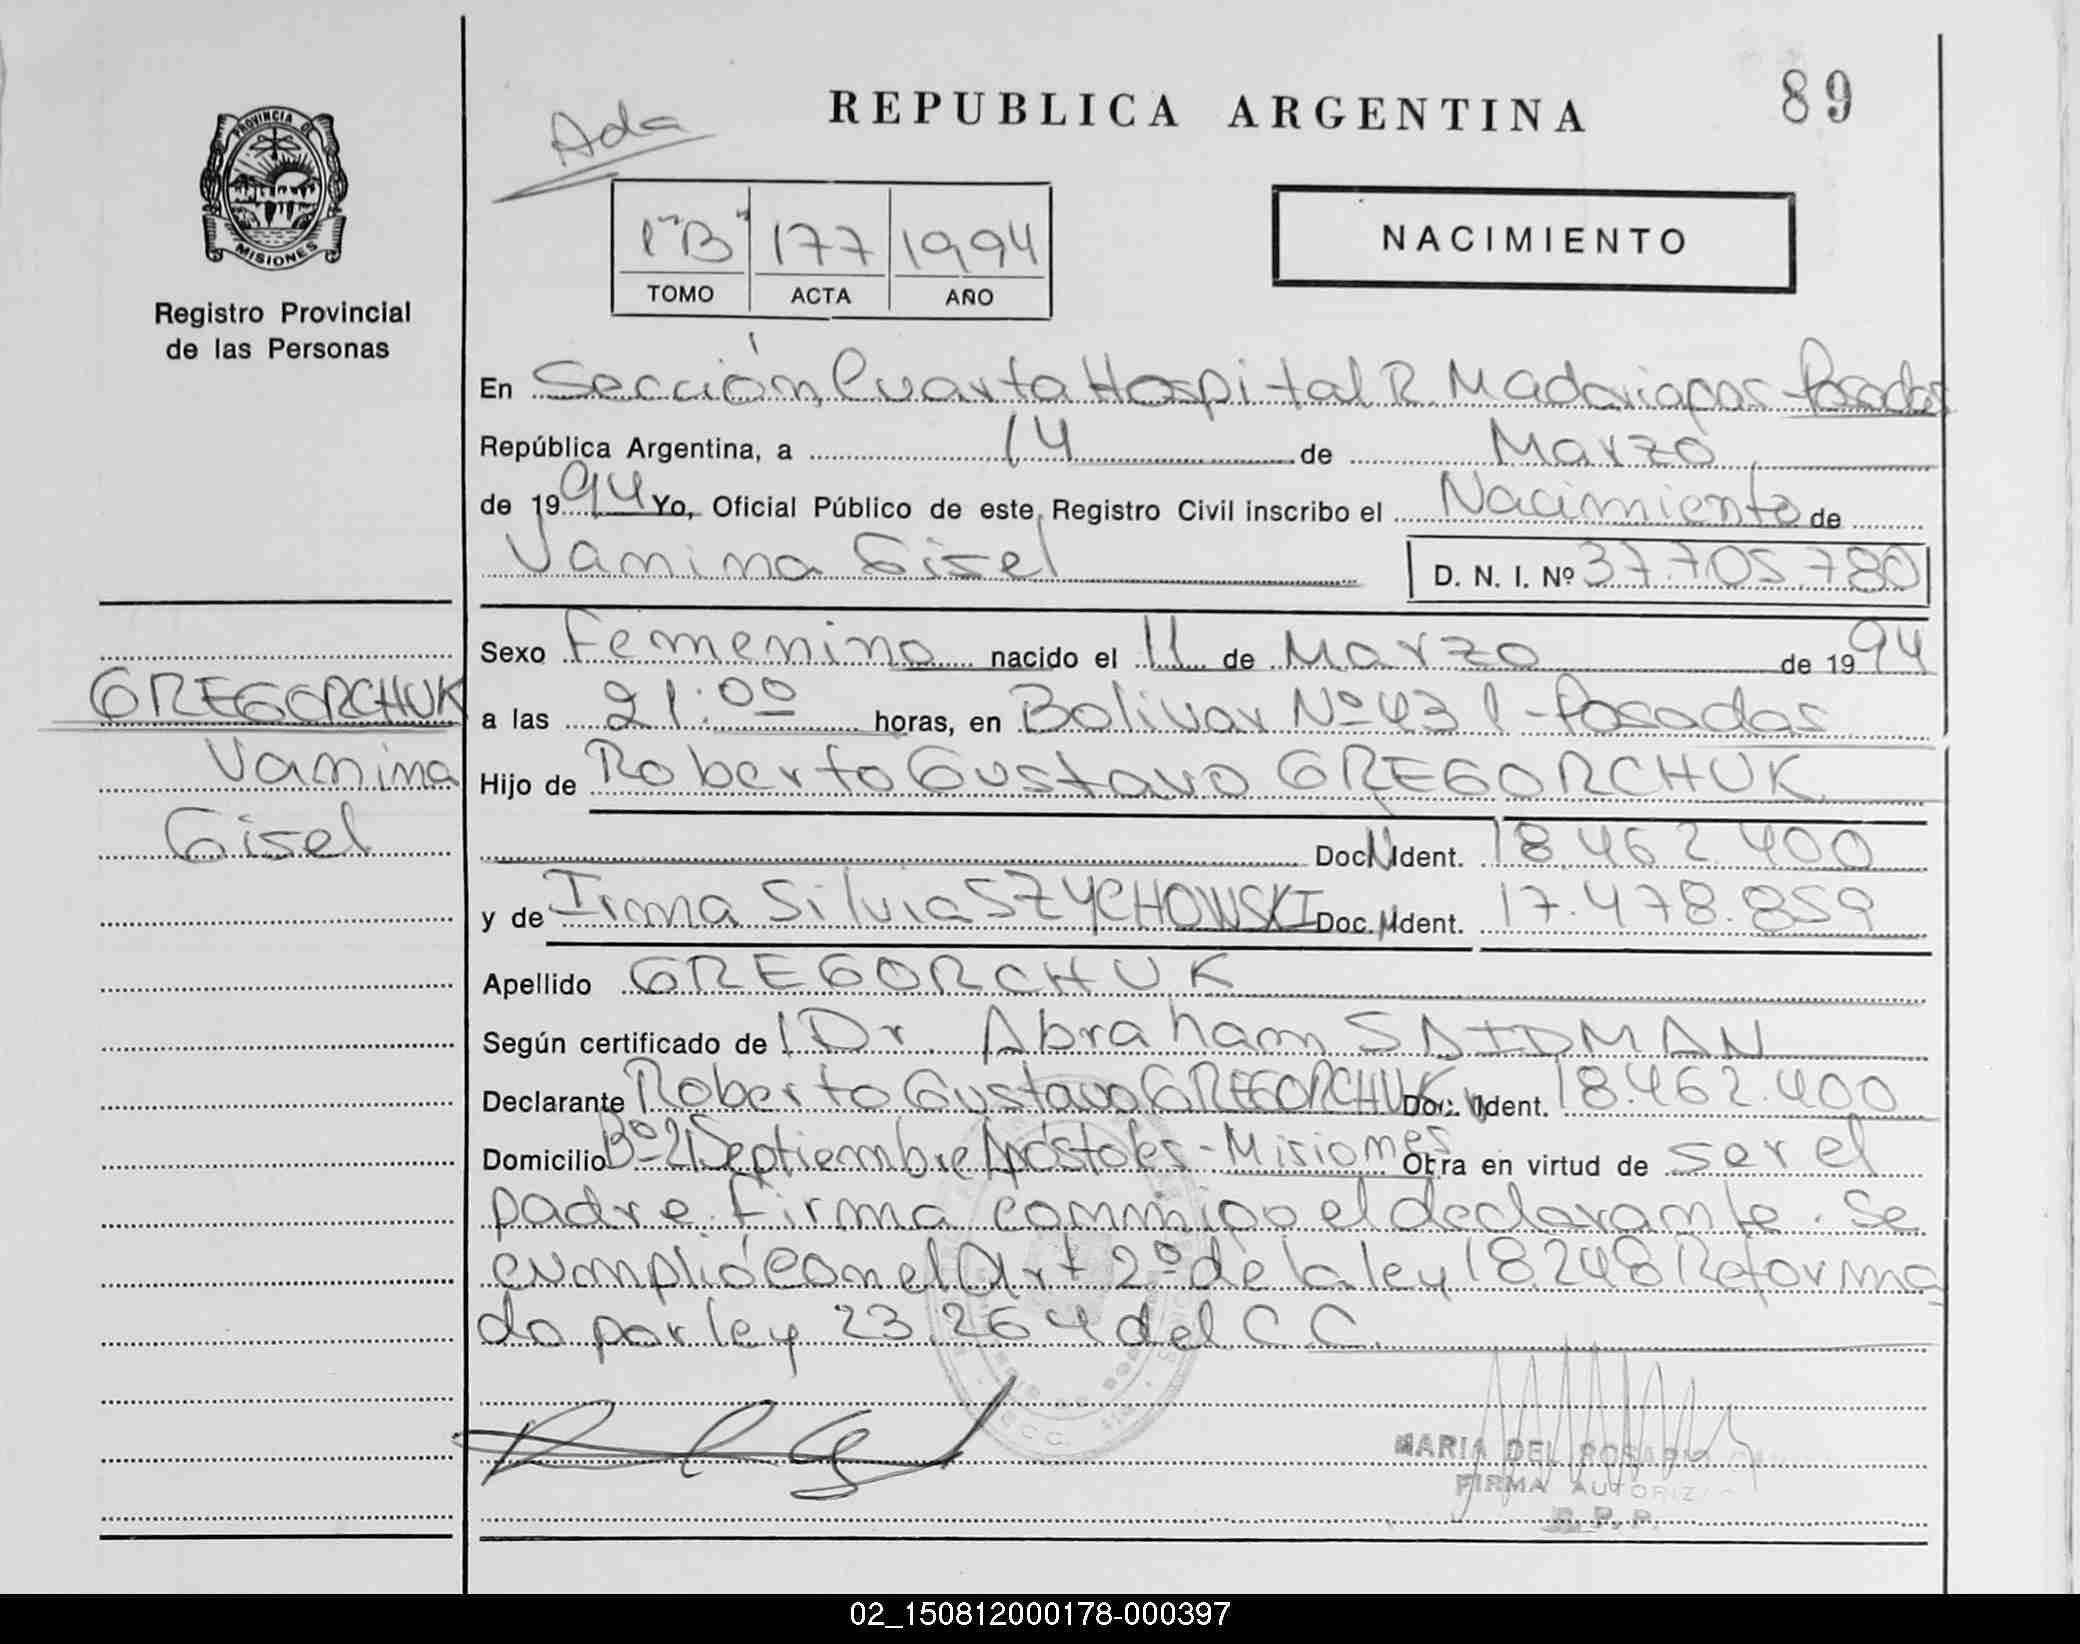 REPUBLICA ARGENTINA
89
Ada
PROVINCIA DE
MISIONES
Registro Provincial
de las Personas
1º"B" 177 1994
TOMO ACTA AÑO
NACIMIENTO
En Sección Cuarta Hospital R. Madariaga Posadas
República Argentina, a 14 de Marzo
de 1994 Yo, Oficial Público de este Registro Civil inscribo el Nacimiento de
Vanina Gisel
D. N. I. Nº 37.705.780
Sexo Femenino nacido el 11 de Marzo de 1994
GREGORCHUK
Vanina
Gisel
a las 21:00 horas, en Bolivar Nº 431 - Posadas
Hijo de Roberto Gustavo GREGORCHUK
Doc. N. Ident. 18.462.400
y de Irma Silvia SZYCHOWSKI Doc. N. Ident. 17.478.859
Apellido GREGORCHUK
Según certificado de l Dr. Abraham SAIDMAN
Declarante Roberto Gustavo GREGORCHUK Doc. N. Ident. 18.462.400
Domicilio Bº 21 Septiembre Apóstoles - Misiones Obra en virtud de ser el
padre. Firma conmigo el declarante. Se
cumplió con el Art 2º de la ley 18.248 Reforma
do por ley 23.264 del C.C.
MARIA DEL ROSARIO
FIRMA AUTORIZ
R. P. P.
02_150812000178-000397